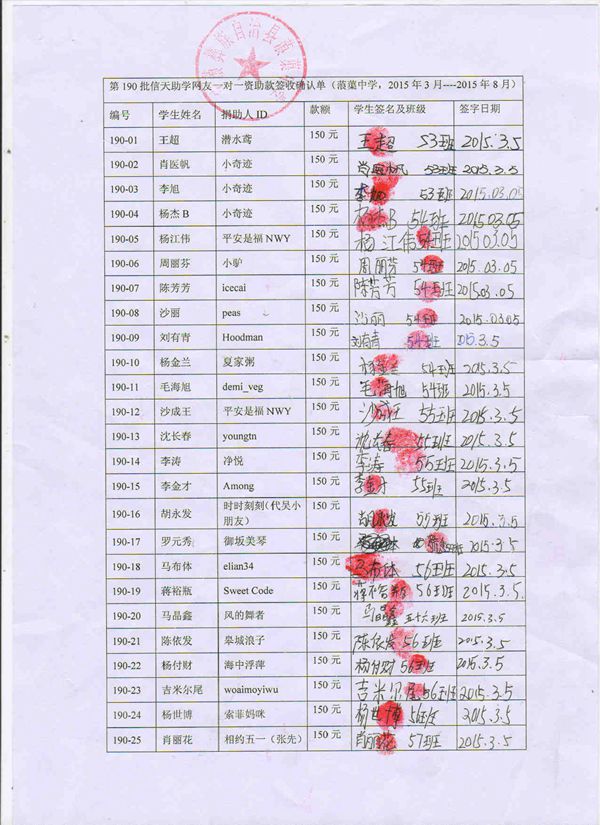 彝族自治县蒗蕖
第 190 批信天助学网友一对一资助款签收确认单（蒗蕖中学，2015 年 3 月----2015 年 8 月）
编号 学生姓名 捐助人 ID 款额 学生签名及班级 签字日期
190-01 王超 潜水鸢 150 元 王超 53班 2015.3.5
190-02 肖医帆 小奇迹 150 元 肖医帆 53班 2015.3.5
190-03 李旭 小奇迹 150 元 李旭 53班 2015.03.05
190-04 杨杰 B 小奇迹 150 元 杨杰B 54班 2015.03.05
190-05 杨江伟 平安是福 NWY 150 元 杨江伟 54班 2015.03.05
190-06 周丽芬 小驴 150 元 周丽芬 54班 2015.03.05
190-07 陈芳芳 icecai 150 元 陈芳芳 54班 2015.03.05
190-08 沙丽 peas 150 元 沙丽 54班 2015.03.05
190-09 刘有青 Hoodman 150 元 刘有青 54班 2015.3.5
190-10 杨金兰 夏家粥 150 元 杨金兰 54班 2015.3.5
190-11 毛海旭 demi_veg 150 元 毛海旭 54班 2015.3.5
190-12 沙成王 平安是福 NWY 150 元 沙成王 55班 2015.3.5
190-13 沈长春 youngtn 150 元 沈长春 55班 2015.3.5
190-14 李涛 净悦 150 元 李涛 55班 2015.3.5
190-15 李金才 Among 150 元 李金才 55班 2015.3.5
190-16 胡永发 时时刻刻（代吴小 150 元 胡永发 2015.3.5
朋友）
190-17 罗元秀 御坂美琴 150 元 2015.3.5
190-18 马布体 elian34 150 元 马布体 56班 2015.3.5
190-19 蒋裕瓶 Sweet Code 150 元 蒋裕瓶 56班 2015.3.5.
190-20 马晶鑫 风的舞者 150 元 马晶鑫 五十六班 2015.3.5
190-21 陈依发 皋城浪子 150 元 陈依发 56班 2015.3.5
190-22 杨付财 海中浮萍 150 元 杨付财 56班 2015.3.5
190-23 吉米尔尾 woaimoyiwu 150 元 吉米尔尾 56班 2015.3.5
190-24 杨世博 索菲妈咪 150 元 杨世博 56班 2015.3.5
190-25 肖丽花 相约五一（张先） 150 元 肖丽花 57班 2015.3.5